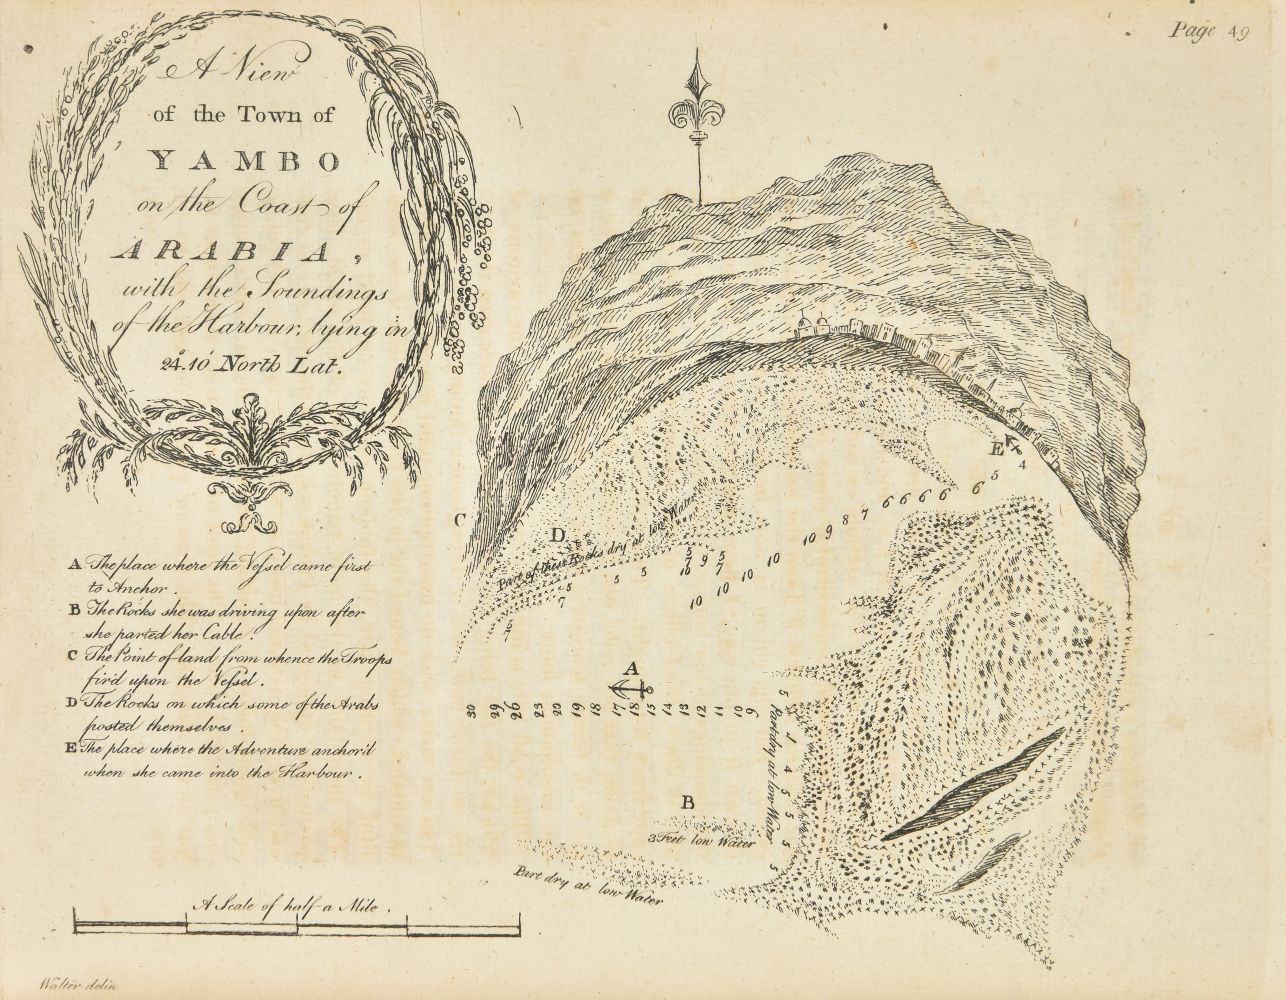 Page 49
A View
of the Town of
YAMBO
on the Coast of
ARABIA,
with the Soundings
of the Harbour, lying in
24°.10′ North Lat.
A The place where the Vessel came first
to Anchor.
B The Rocks she was driving upon after
she parted her Cable.
C The Point of land from whence the Troops
fir'd upon the Vessel.
D The Rocks on which some of the Arabs
posted themselves.
E The place where the Adventure anchor'd
when she came into the Harbour.
E
4
5
6 6 6 6 6
7
8
9
10
C
D
Part of these Rocks dry at low Water
10
10
10
10
5 7 10
9
5 7
5
5
5
7
5
7
A
30 29 26 23 20 19 18 17 18 15 14 13 12 11 10 9
5
5
Part dry at low Water
4
5
5
5
5
B
3 Feet low Water
Part dry at low Water
A Scale of half a Mile.
Walter delin